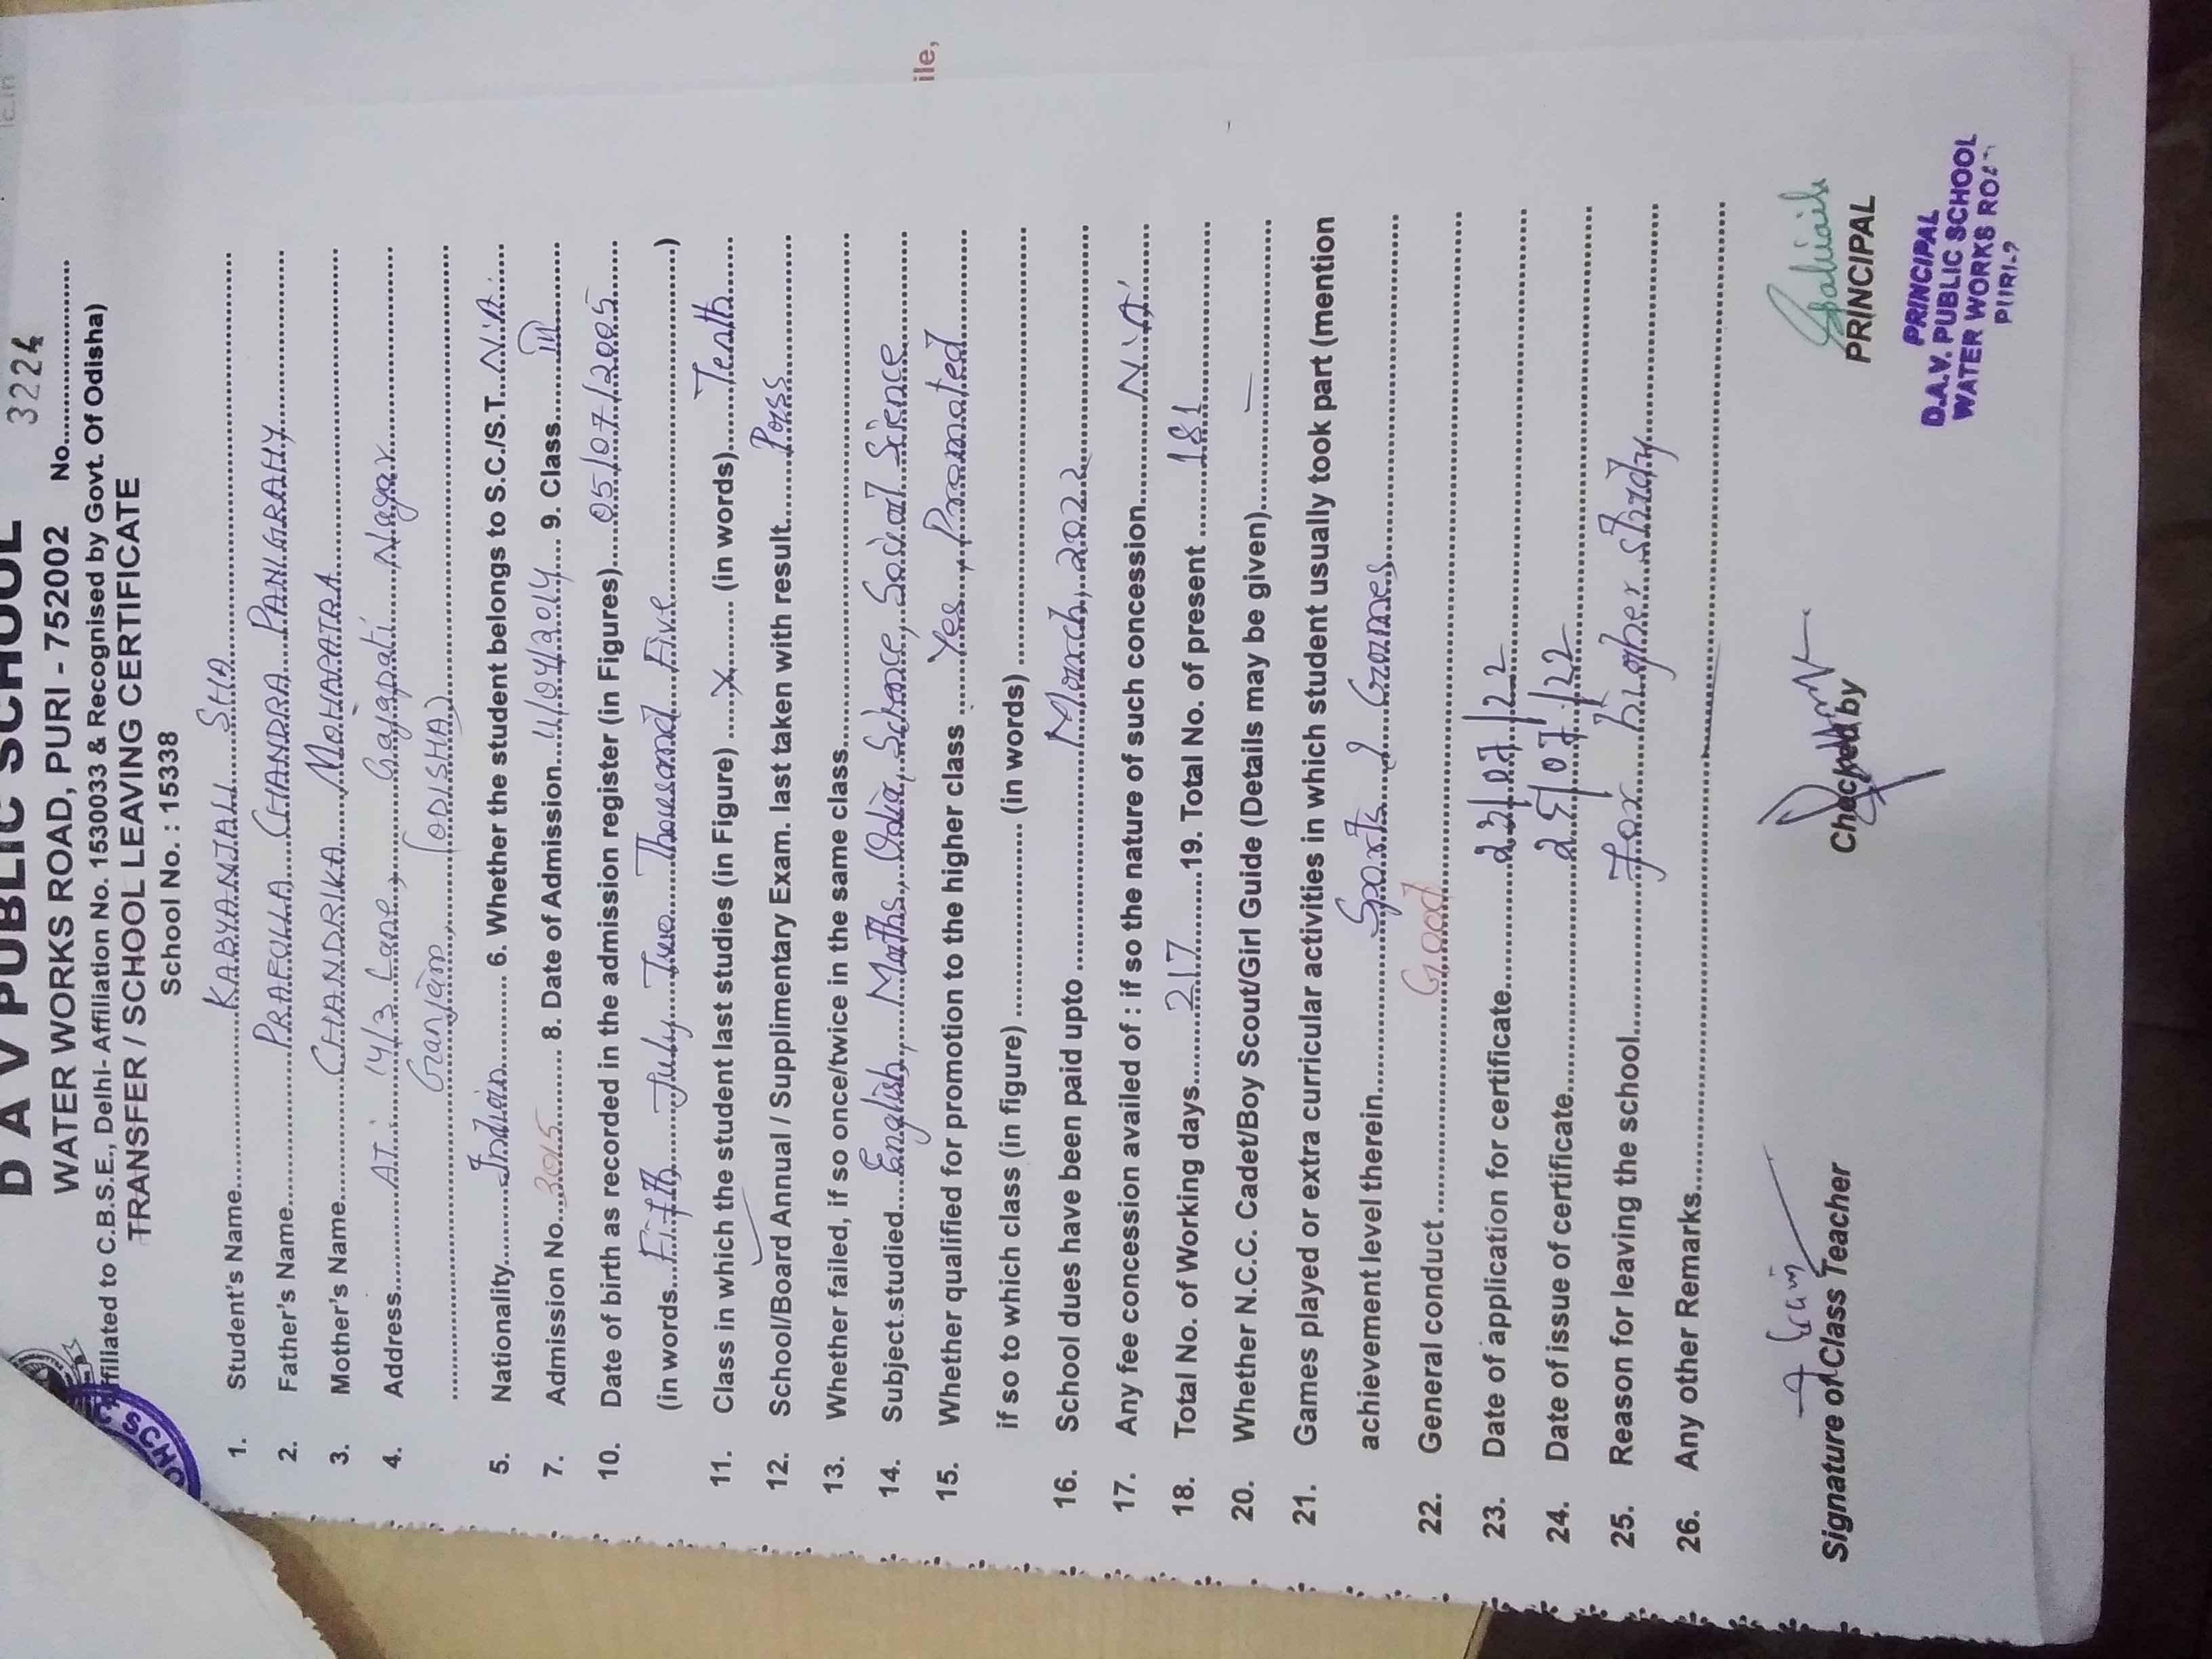 D A V PUBLIC SCHOOL
3224
WATER WORKS ROAD, PURI - 752002 No.
ffiliated to C.B.S.E., Delhi- Affiliation No. 1530033 & Recognised by Govt. Of Odisha)
TRANSFER / SCHOOL LEAVING CERTIFICATE
School No. : 15338
1. Student's Name KABYANJALI SHA
2. Father's Name PRAFULLA CHANDRA PANIGRAHY
3. Mother's Name CHANDRIKA MOHAPATRA
4. Address AT: 14/3 Lane, Gajapati Nagar
Ganjam, (ODISHA)
5. Nationality Indian 6. Whether the student belongs to S.C./S.T. N.A.
7. Admission No. 3015 8. Date of Admission 11/04/2014 9. Class III
10. Date of birth as recorded in the admission register (in Figures) 05/07/2005
(in words Fifth July Two Thousand Five)
11. Class in which the student last studies (in Figure) X (in words) Tenth
12. School/Board Annual / Supplimentary Exam. last taken with result Pass
13. Whether failed, if so once/twice in the same class
14. Subject studied English, Maths, Odia, Science, Social Science
15. Whether qualified for promotion to the higher class Yes, Promoted
if so to which class (in figure) (in words)
16. School dues have been paid upto March, 2022
17. Any fee concession availed of : if so the nature of such concession N.A.
18. Total No. of Working days 217 19. Total No. of present 181
20. Whether N.C.C. Cadet/Boy Scout/Girl Guide (Details may be given) —
21. Games played or extra curricular activities in which student usually took part (mention
achievement level therein Sports & Games
22. General conduct Good
23. Date of application for certificate /07/22
24. Date of issue of certificate 25/07/22
25. Reason for leaving the school For higher study
26. Any other Remarks
Signature of Class Teacher Checked by PRINCIPAL
PRINCIPAL
D.A.V. PUBLIC SCHOOL
WATER WORKS ROA
PURI-2
SCHO
ile,